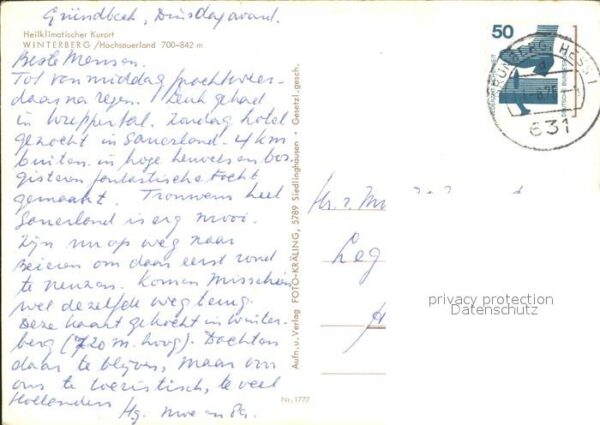 Gründbech, Dinsdagavond.
Heilklimatischer Kurort
WINTERBERG / Hochsauerland 700-842 m
Beste Mensen.
Tot vanmiddag prachtweer
daarna regen. Leuk gehad
in Wuppertal. Zondag hotel
gezocht in Sauerland. 4 km
buiten in hoge heuvels en bos
gisteren fantastische tocht
gemaakt. Trouwens heel
Sauerland is erg mooi.
Zijn nu op weg naar
Beieren om daar eerst rond
te neuzen. Komen misschien
wel dezelfde weg terug.
Deze kaart gekocht in Winter-
berg (720 m. hoog). Dachten
daar te blijven, maar om
ons te toeristisch, te veel
Hollanders
Hg.
Aufn. u. Verlag FOTO-KRÄLING, 5789 Siedlinghausen · Gesetzl. gesch.
Nr. 1777
50
631
Leg
privacy protection
Datenschutz